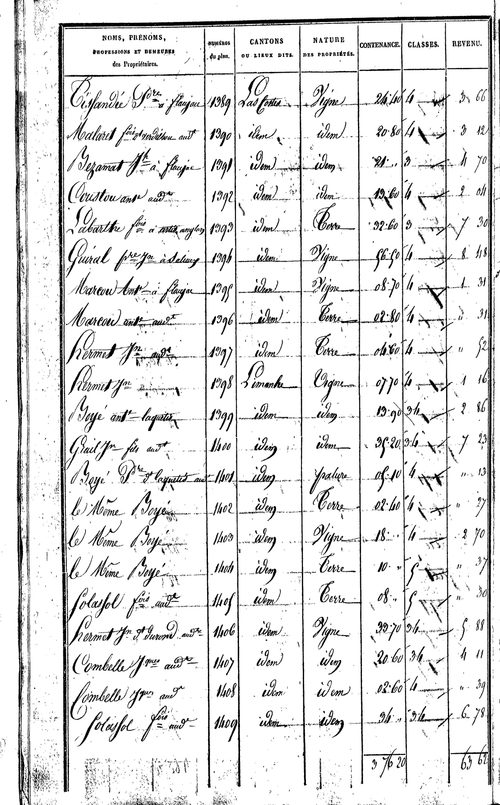 NOMS, PRÉNOMS, PROFESSIONS ET DEMEURES des Propriétaires. NUMÉROS du plan. CANTONS OU LIEUX DITS. NATURE DES PROPRIÉTÉS. CONTENANCE. CLASSES. REVENU.
Pre à flaujac 1389 Las Costes Vigne 24.40 4 3 66
Malaret fois 1390 idem idem 20.80 4 3 12
Bezamat à flaujac 1391 idem idem 21 " 3 4 70
Coustou ant aud 1392 idem idem 13.60 4 2 04
Labarthe fois à 1393 idem Terre 32.60 3 7 30
Guiral pre Jn à 1394 idem Vigne 56.50 4 8 48
Marcou Ant à flaujac 1395 idem Vigne 08.70 4 1 31
Marcou ant aud 1396 idem Terre 02.80 4 " 31
hermet Jn aud 1397 idem Terre 04.60 4 " 52
hermet Jn 1398 Vigne 07.70 4 1 16
Boyé ant 1399 idem idem 13.90 3 4 2 86
Jn fils aud 1400 idem idem 35.20 3 4 7 23
Boyé Pre 1401 idem pature 05.10 4 " 13
le Même Boyé 1402 idem Terre 02.40 4 " 27
le Même Boyé 1403 idem Vigne 18. " 4 2 70
le Même Boyé 1404 idem Terre 10 " 5 " 37
Solassol fois aud 1405 idem Terre 08 " 5 " 30
hermet Jn aud 1406 idem Vigne 33.70 3 4 5 88
Combelle Jques aud 1407 idem idem 20.60 3 4 4 11
Combelle Jques aud 1408 idem idem 02.60 4 " 39
Solassol fois aud 1409 idem idem 34 " 3 4 6 78
3 76 20 63 62